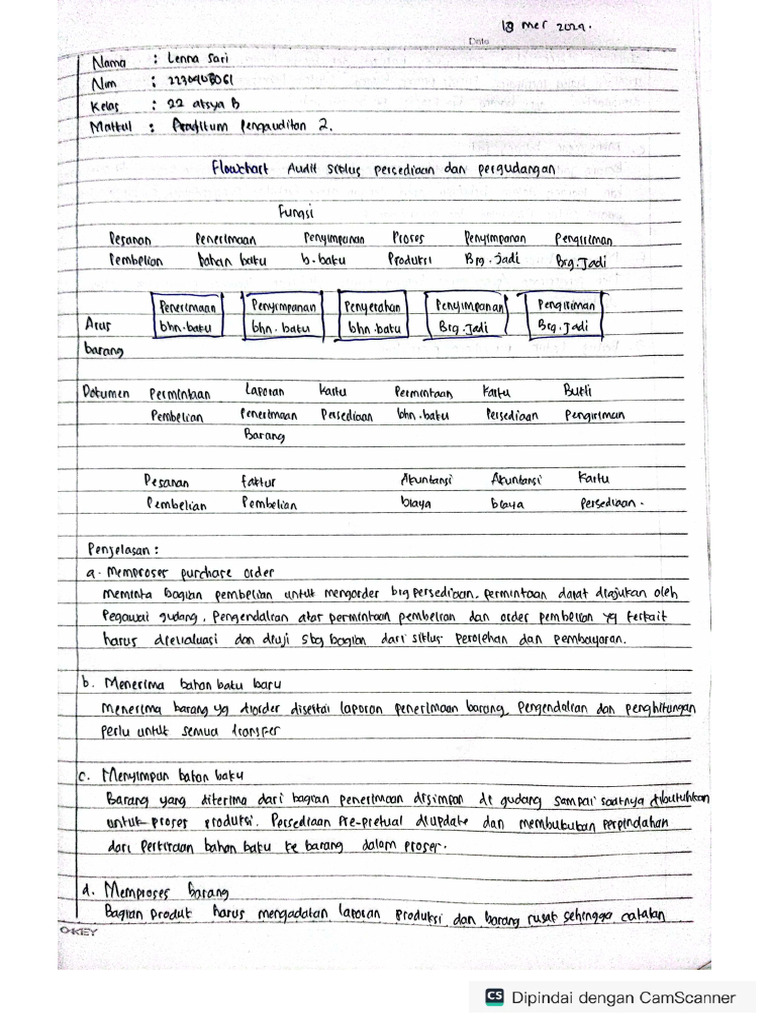 18 Mei 2024.
Date
Nama : Lenna Sari
Nim : 2230408061
Kelas : 22 aksya B
Matkul : Praktikum Pengauditan 2.
Flowchart Audit siklus persediaan dan pergudangan
Fungsi
Pesanan Penerimaan Penyimpanan Proses Penyimpanan Pengiriman
Pembelian bahan baku b. baku Produksi Brg. jadi Brg. Jadi
Penerimaan Penyimpanan Penyerahan Penyimpanan Pengiriman
Arus bhn. baku bhn. baku bhn. baku Brg. Jadi Brg. Jadi
barang
Dokumen Permintaan Laporan Kartu Permintaan Kartu Bukti
Pembelian Penerimaan Persediaan bhn. baku Persediaan Pengiriman
Barang
Pesanan Faktur Akuntansi Akuntansi Kartu
Pembelian Pembelian biaya biaya Persediaan.
Penjelasan :
a. Memproses purchase order
meminta bagian pembelian untuk mengorder brg persediaan, permintaan dapat diajukan oleh
Pegawai gudang. Pengendalian atas permintaan pembelian dan order pembelian yg terkait
harus dievaluasi dan diuji sbg bagian dari siklus perolehan dan pembayaran.
b. Menerima bahan baku baru
Menerima barang yg diorder disertai laporan penerimaan barang. Pengendalian dan penghitungan
perlu untuk semua transfer
c. Menyimpan bahan baku
Barang yang diterima dari bagian penerimaan disimpan di gudang sampai saatnya dibutuhkan
untuk proses produksi. Persediaan pre-pretual diupdate dan membukukan perpindahan
dari Perkiraan bahan baku ke barang dalam proses.
d. Memproses Barang
Bagian produk harus mengadakan laporan produksi dan barang rusak sehingga catatan
OKEY
CS Dipindai dengan CamScanner